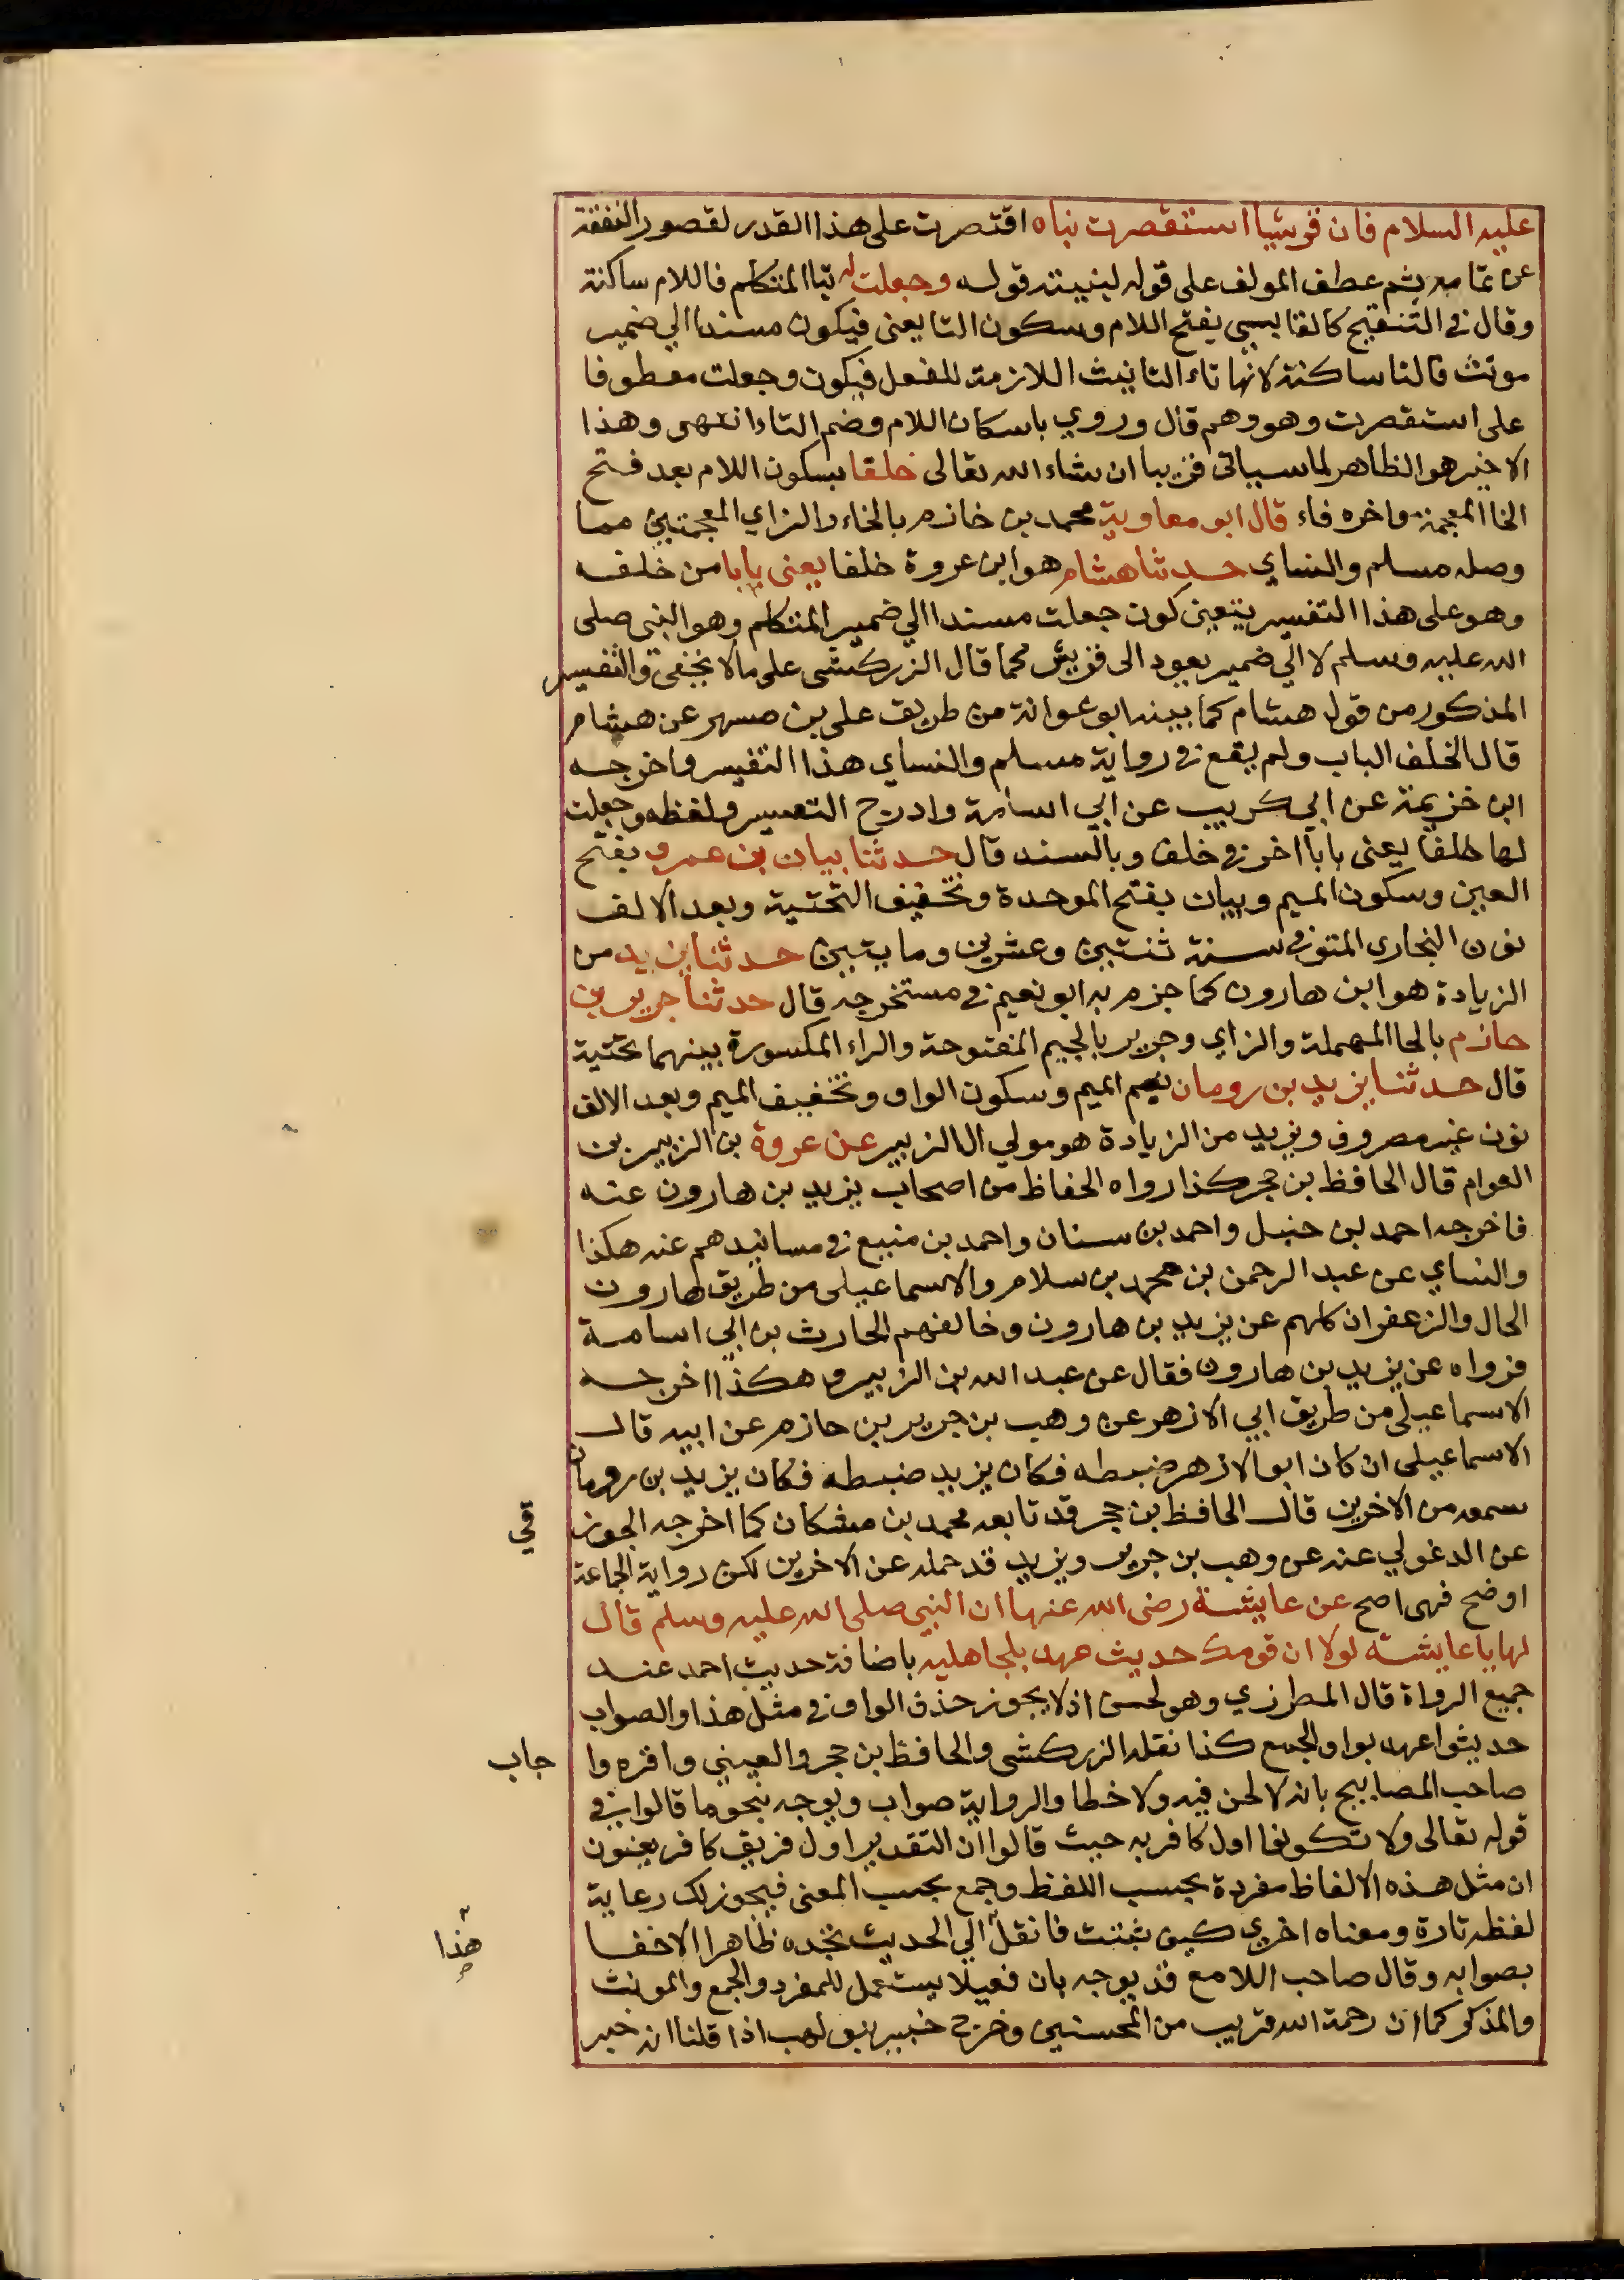 عليه السلام فان قريشا استقصرت بناه اقتصرت على هذا القدر لقصور النفقة
عن تمامه ثم عطف المولف على قوله لبنيته قوله وجعلت له بتا المتكلم فاللام ساكنة
وقال في التنقيح كالقابسي بفتح اللام وسكون التا يعنى فيكون مسندا الي ضمير
مونث فالتا ساكنة لانها تاء التانيث اللازمة للفعل فيكون وجعلت معطوفا
على استقصرت وهو وهم قال وروي باسكان اللام وضم التاء انتهى وهذا
الاخير هو الظاهر لما سياتى قريبا ان شاء الله تعالى خلفا بسكون اللام بعد فتح
الخا المعجمة واخره فاء قال ابو معاوية محمد بن خازم بالخاء والزاي المعجمتين مما
وصله مسلم والنساي حدثنا هشام هو ابن عروة خلفا يعنى بابا من خلفه
وهو على هذا التفسير يتعين كون جعلت مسندا الي ضمير المتكلم وهو النبى صلى
الله عليه وسلم لا الي ضمير يعود الى قريش كما قال الزركشى على ما لا يخفى والتفسير
المذكور من قول هشام كما بينه ابو عوانة من طريق على بن مسهر عن هشام
قال الخلف الباب ولم يقع في رواية مسلم والنساي هذا التفسير واخرجه
ابن خزيمة عن ابي كريب عن ابي اسامة وادرج التفسير ولفظه وجعلت
لها خلفا يعنى بابا اخر في خلف وبالسند قال حدثنا بيان بن عمرو بفتح
العين وسكون الميم وبيان بفتح الموحدة وتخفيف التحتية وبعد الالف
نون البخارى المتوفى سنة ثنتين وعشرين ومايتين حدثنا يزيد من
الزيادة هو ابن هارون كما جزم به ابو نعيم في مستخرجه قال حدثنا جرير بن
حازم بالحا المهملة والزاي وجرير بالجيم المفتوحة والراء المكسورة بينهما تحتية
قال حدثنا يزيد بن رومان بضم الميم وسكون الواو وتخفيف الميم وبعد الالف
نون غير مصروف ويزيد من الزيادة هو مولي ال الزبير عن عروة بن الزبير بن
العوام قال الحافظ بن حجر كذا رواه الحفاظ من اصحاب يزيد بن هارون عنه
فاخرجه احمد بن حنبل واحمد بن سنان واحمد بن منيع في مسانيدهم عنه هكذا
والنساي عن عبد الرحمن بن محمد بن سلام والاسماعيلى من طريق هارون
الحال والزعفران كلهم عن يزيد بن هارون وخالفهم الحارث بن ابي اسامة
فرواه عن يزيد بن هارون فقال عن عبد الله بن الزبير وهكذا اخرجه
الاسماعيلى من طريق ابي الازهر عن وهب بن جرير بن حازم عن ابيه قال
الاسماعيلى ان كان ابو الازهر ضبطه فكان يزيد ضبطه فكان يزيد بن رومان
سمعه من الاخرين قال الحافظ بن حجر قد تابعه محمد بن مشكان كما اخرجه الجوز
قي
عن الدغولي عنه عن وهب بن جرير ويزيد قد حمله عن الاخرين لكن رواية الجماعة
اوضح فهى اصح عن عايشة رضى الله عنها ان النبى صلى الله عليه وسلم قال
لها يا عايشة لولا ان قومك حديث عهد بلجاهليه باضافة حديث احمد عند
جميع الرواة قال المطرزي وهو لحن اذ لا يجوز حذف الواو في مثل هذا والصواب
حديثوا عهد بواو الجمع كذا نقله الزركشى والحافظ بن حجر والعيني واقره وا
جاب
صاحب المصابيح بانه لا لحن فيه ولا خطا والرواية صواب ويوجه بنحو ما قالوا في
قوله تعالى ولا تكونوا اول كافر به حيث قالوا ان التقدير اول فريق كافر يعنون
ان مثل هذه الالفاظ مفردة بحسب اللفظ وجمع بحسب المعنى فيجوز لك رعاية
لفظه تارة ومعناه اخري كيف شئت فانقل الي الحديث تجده ظاهرا لاخفا
هذا
بصوابه وقال صاحب اللامع قد يوجه بان فعيلا يستعمل للمفرد والجمع والمونث
والمذكر كما ان رحمة الله قريب من المحسنين وخرج خبير بنو لهب اذا قلنا انه خبر